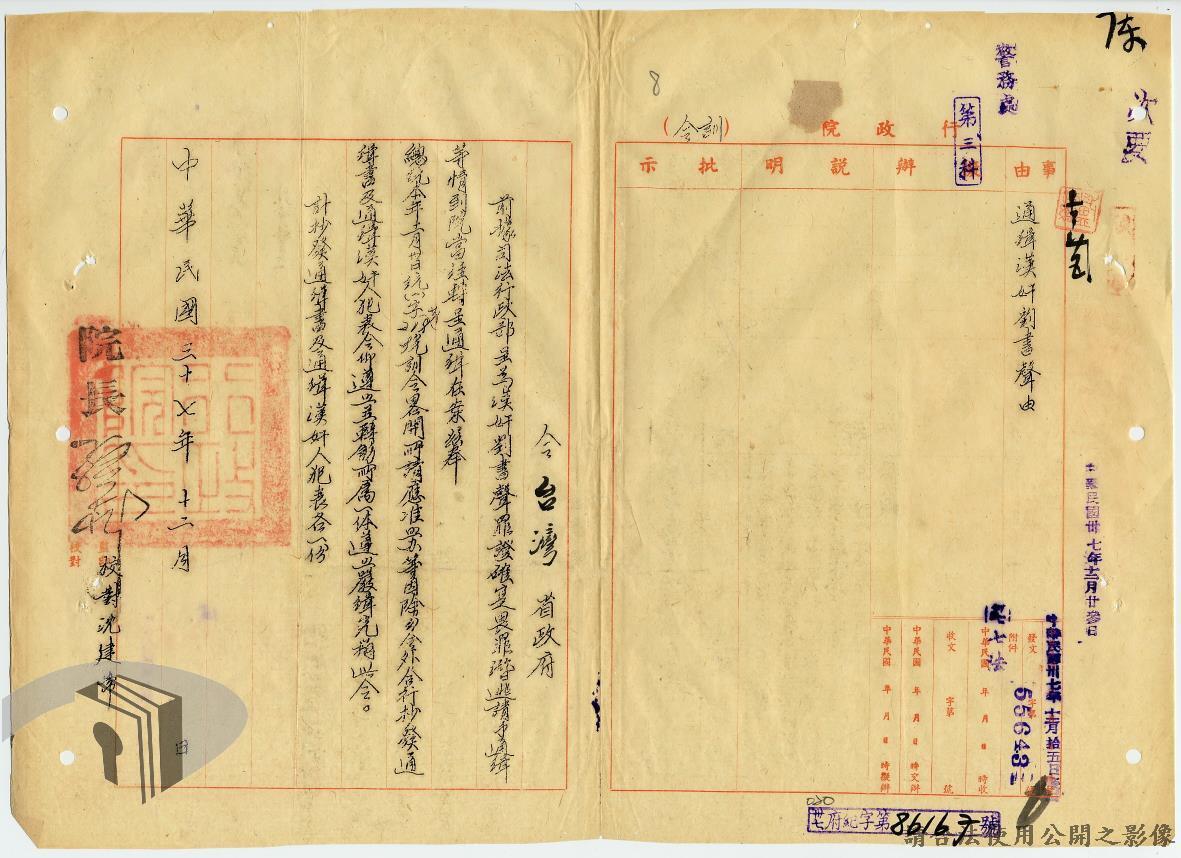 次要
警務處
第三科
行政院
(訓令)
事由
辦
說明
批示
通緝漢奸劉書聲由
中華民國卅七年十二月廿叁日
中華民國卅七年十二月拾五日
發文
字第
附件
55643
七法
中華民國 年 月 日 時收
收文 字第 號
中華民國 年 月 日 時交辦
中華民國 年 月 日 時擬辦
府紀字第
號
8
令台灣省政府
前據司法行政部呈為漢奸劉書聲罪證確定畏罪潛逃請予通緝
等情到院當經轉呈通緝在案茲奉
訓令畧開所請應准照办等因除分令外合行抄發通
緝書及通緝漢奸人犯表令仰遵照並轉飭所屬一体遵照嚴緝究辦此令。
計抄發通緝書及通緝漢奸人犯表各一份
院長
中華民國三十七年十二月
日
校對沈建
校對
請合法使用公開之影像